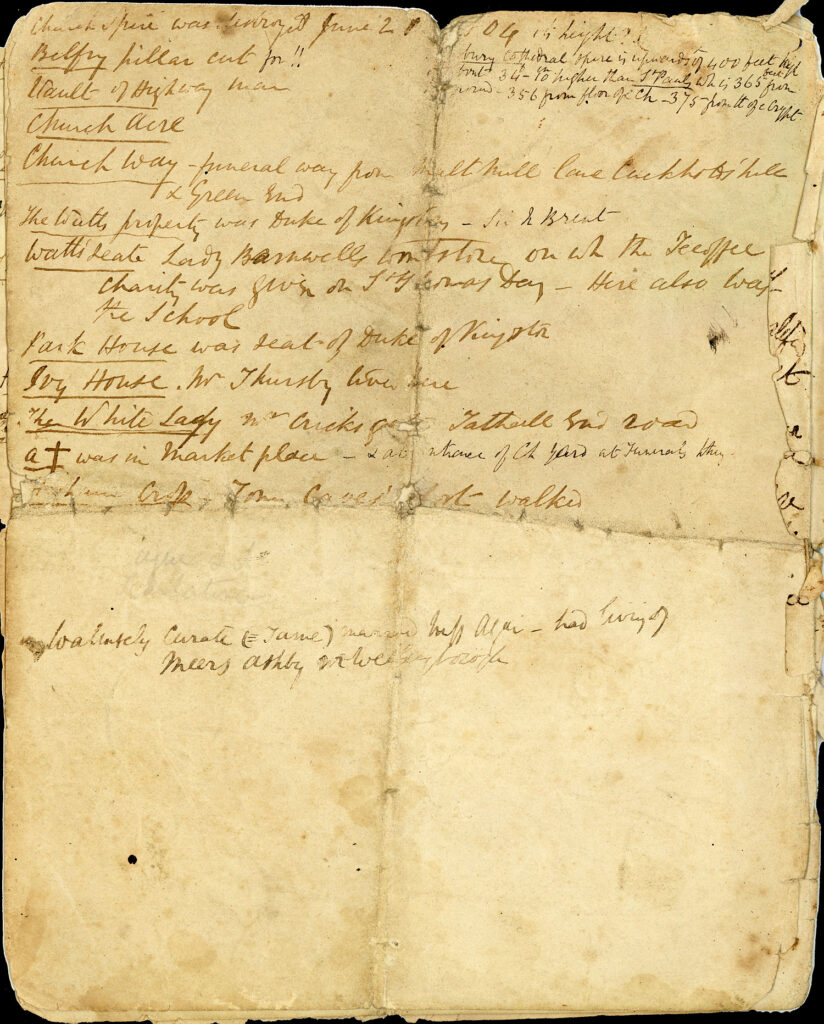 Church Spire was destroyed June 2 1804 its height?
bury Cathedral spire is upwards of 400 feet high
34 higher than St Pauls wh is 365 from
356 from floor of Ch - 375 from of Crypt
Belfry pillar cut for!!
Vault of Highway man
Church Acre
Church Way - funeral way from Malt Mill Lane Cuckholds hill
& Green End
The Watts property was Duke of Kingston - Sir R Brent
Watts Seate Lady Barnwells tombstone on wh the Feoffee
charity was given on St Thomas Day - Here also was
the School
Park House was seat of Duke of Kingston
Ivy House. Mr Thursby lived here
The White Lady Mr Cricks Tathall End road
a † was in Market place - & at entrance of Ch Yard at Funerals they
Cross. Tom Caves walked
Curate (= Tame) married Miss - had living of
Meers Ashby nr Wellingborough